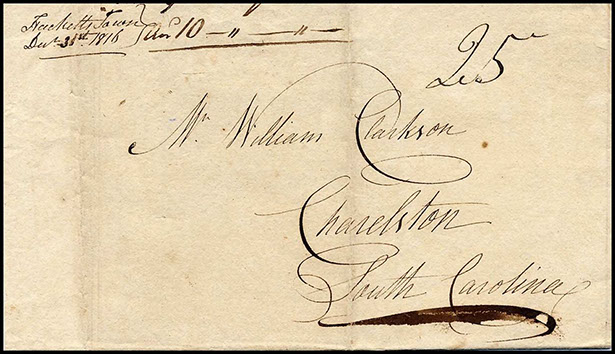 Hacketts Town
Decr 31st 1816 10 — " — " —
25
Mr William Clarkson
Charelston
South Carolina